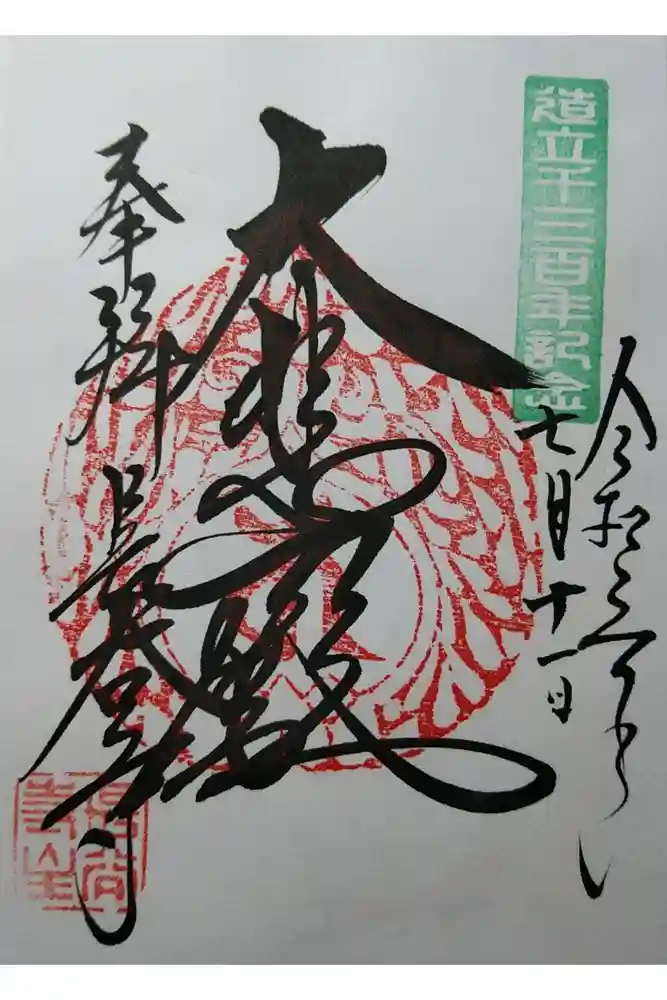 造立千三百年記念
令和三年
七月十一日
大悲殿
奉拝
長谷寺